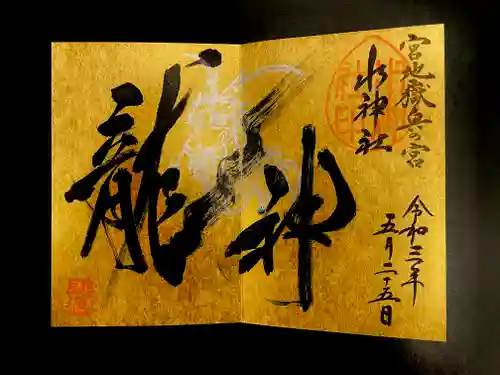 宮地嶽奥の宮
水神社
令和三年
五月二十五日
龍神